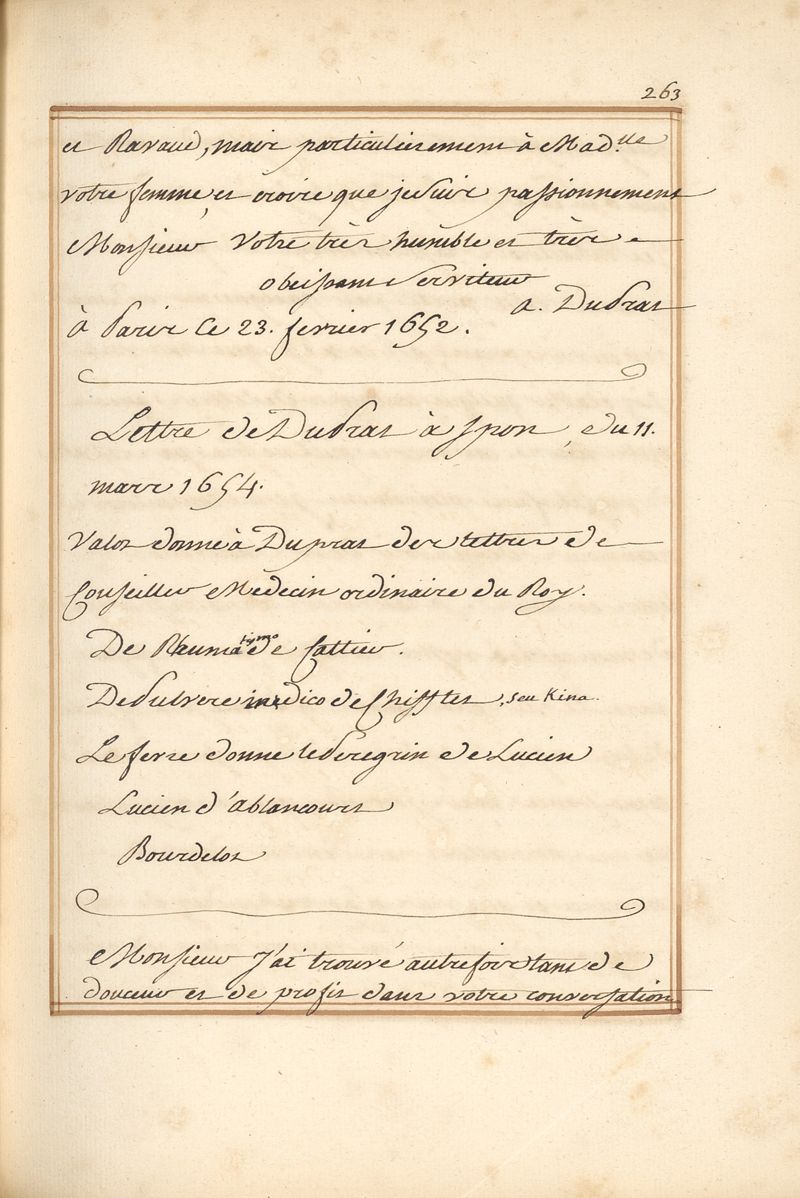 263
et Ravaud, mais particulierement à Mad.lle
votre femme, et croire que je suis passionnement
Monsieur Votre très humble et très
obeissant Serviteur
A. Duprat
à Paris ce 23. fevrier 1652.
Lettre de Duprat à Spon, du 11.
mars 1654.
Valot donne à Duprat des lettres de
Conseiller Medecin ordinaire du Roy.
De Rheuma de Cattier.
De Pulvere de Chifflet, seu Kina
Le fevre donne le Peregrin de Lucien
Lucien d'Ablancourt
Bourdelot
Monsieur J'ai trouvé autrefois tant de
douceur et de profit dans votre conversation